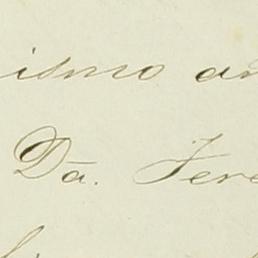 ismo an
Da. Fere